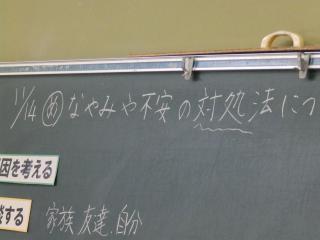 11/14 ㋱ なやみや不安の対処法につ
因を考える
談する
家族、友達、自分